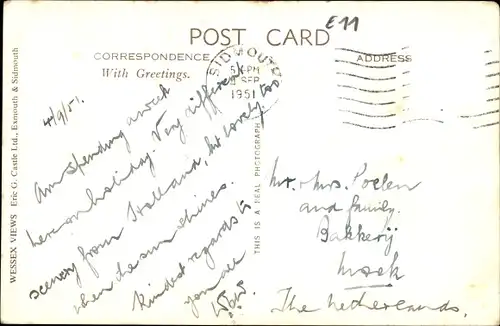 E11
POST CARD
CORRESPONDENCE
ADDRESS
With Greetings.
SIDMOUTH
5 PM
SEP
1951
4/9/51.
Am spending a week
here on holiday. Very different
scenery from Holland, but lovely, too
when the sun shines.
Kindest regards to
you all
WESSEX VIEWS Eric G. Castle Ltd., Exmouth & Sidmouth
THIS IS A REAL PHOTOGRAPH
Mr. & Mrs. Poelen
and family.
Bakkerij
Mook
The Netherlands.